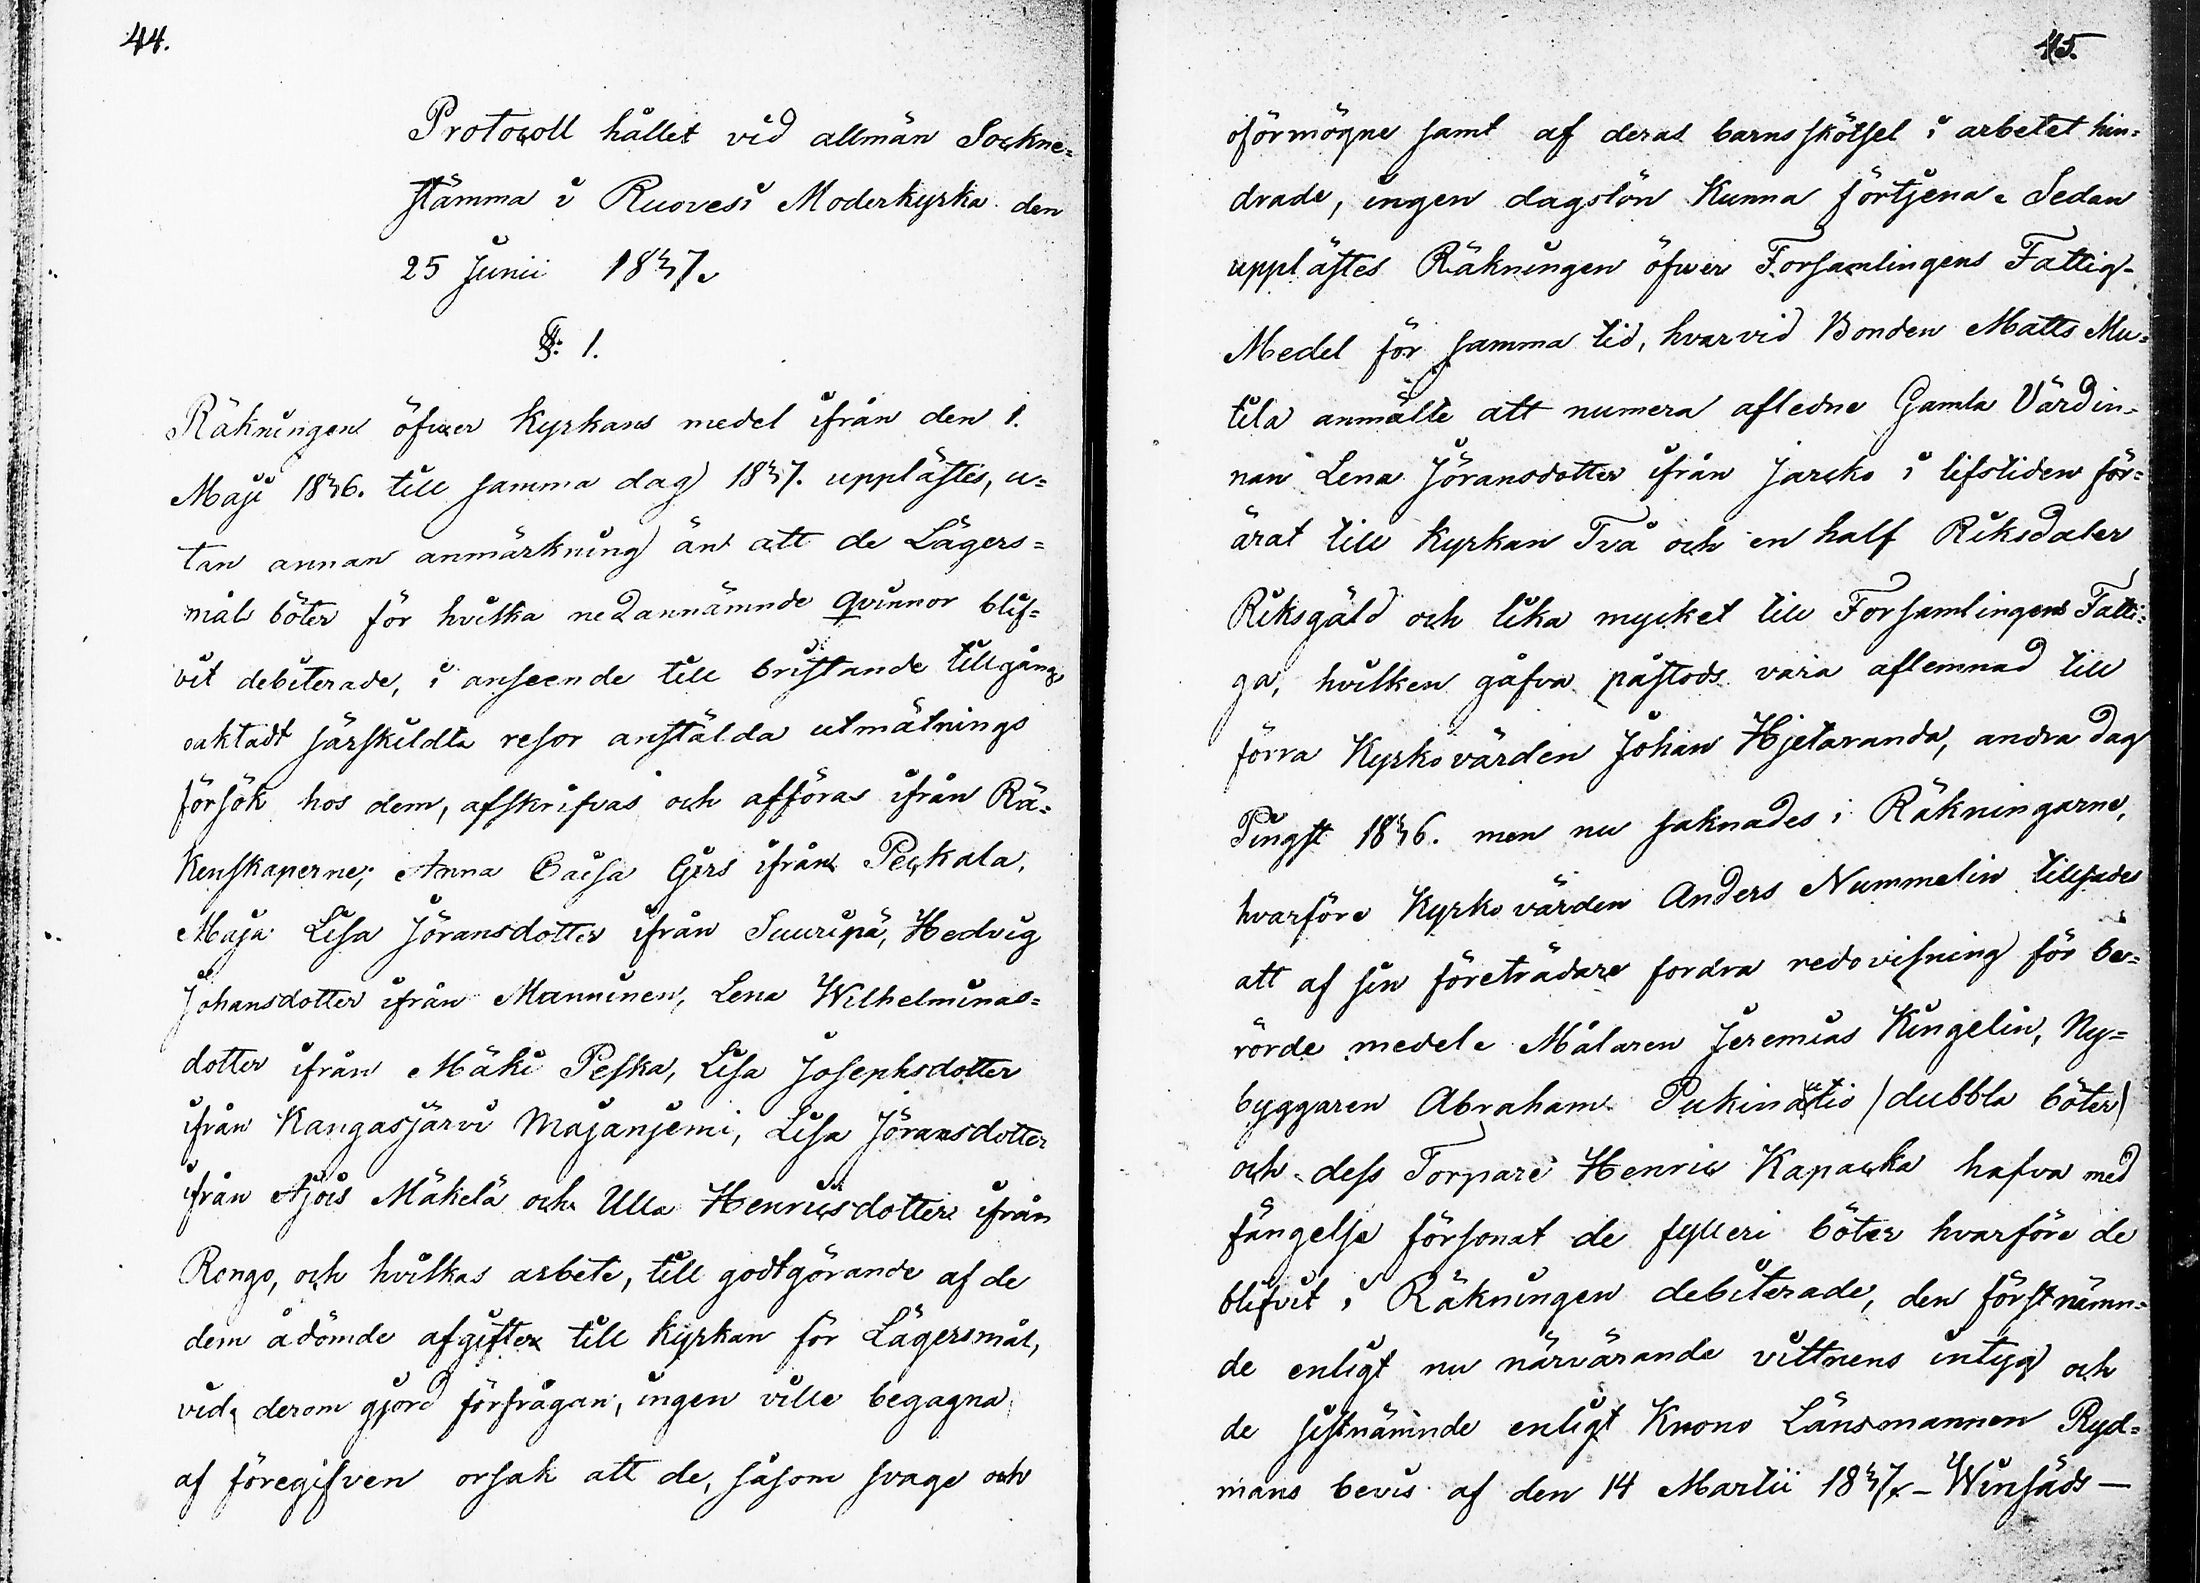 44.
Protocoll hållet vid allmän Sockne=
stämma i Ruovesi Moderkyrka den
25 Junii 1837.
§: 1.
Räkningen öfwer Kyrkans medel ifrån den 1.
Maji 1836. till samma dag 1837. upplästes, u=
tan annan anmärkning än att de Lägers=
måls böter för hvilka nedannämnde qvinnor blif=
vit debiterade, i anseende till bristande tillgång
oaktadt särskildta resor anstälda utmätnings
försök hos dem, afskrifvas och afföras ifrån Rä=
kenskaperne; Anna Caisa Girs ifrån Peckala,
Maja Lisa Jöransdotter ifrån Suuripä, Hedvig
Johansdotter ifrån Manninen, Lena Wilhelminas=
dotter ifrån Mäki Peska, Lisa Josephsdotter
ifrån Kangasjärvi Majanjemi, Lisa Jöransdotter
ifrån Äjöis Mäkelä och Ulla Henricsdotter ifrån
Rongo, och hvilkas arbete, till godtgörande af de
dem ådömde afgifter till kyrkan för Lägersmål,
vid derom gjord förfrågan, ingen ville begagna
af föregifven orsak att de, såsom svage och
45.
oförmögne samt af deras barns skötsel i arbetet hin=
drade, ingen dagslön kunna förtjena. Sedan
upplästes Räkningen öfwer Forsamlingens Fattig-
Medel för samma tid, hvarvid Bonden Matts Mu=
tila anmälte att numera afledne Gamla Värdin=
nan Lena Jöransdotter ifrån Jarcko i lifstiden för=
ärat till Kyrkan Två och en half Riksdaler
Riksgäld och lika mycket till Forsamlingens Fatti=
ga, hvilken gåfva påstods vara aflemnad till
förra Kyrkovärden Johan Hjetaranda, andra dag
Pingst 1836. men nu saknades i Räkningarne,
hvarföre Kyrkovärden Anders Nummelin tillsades
att af sin företrädare fordra redovisning för be=
rörde medel. Målaren Jeremias Kingelin, Ny=
byggaren Abraham Pukinautio (dubbla böter)
och dess Torpare Henric Kapacka hafva med
fängelse försonat de fylleri böter hvarföre de
blifvit i Räkningen debiterade, den förstnämn=
de enligt nu närvärande vittnens intyg och
de sistnämnde enligt Krono Länsmannen Ryd=
mans bevis af den 14 Martii 1837. - Winsäds -